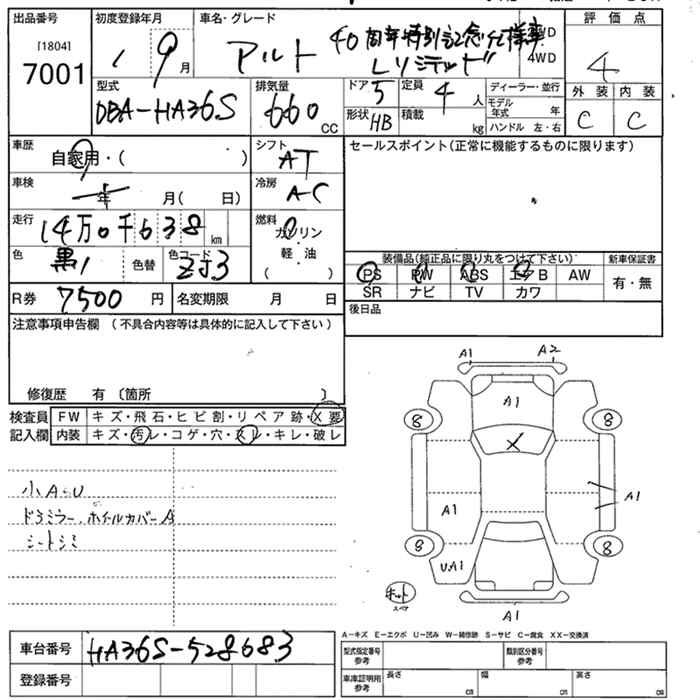 出品番号
[1804]
7001
初度登録年月
1 9月
車名・グレード
アルト 40周年特別記念仕様車
Lリミテッド
WD
4WD
評価点
4
外装 内装
C C
型式
DBA-HA36S
排気量
660 CC
ドア 5
形状 HB
定員 4 人
積載 kg
ディーラー・並行
モデル年式 年
ハンドル 左・右
車歴
自家用・( )
シフト
AT
車検
年 月( 日)
冷房
A-C
走行
14万0千638 km
燃料
ガソリン
・
軽油
( )
色
黒1
色替
色コード
ZJ3
R券 7500 円
名変期限 月 日
セールスポイント(正常に機能するものに限ります)
装備品(純正品に限り丸をつけて下さい)
PS PW ABS エアB AW
SR ナビ TV カワ
新車保証書
有・無
後日品
注意事項申告欄 (不具合内容等は具体的に記入して下さい)
修復歴 有〔箇所 〕
検査員
記入欄
FW キズ・飛石・ヒビ割・リペア跡・X要
内装 キズ・汚レ・コゲ・穴・スレ・キレ・破レ
小A・U
ドアミラー、ホイルカバーA
シートシミ
A1 A2
A1
8 8
X
A1
A1
8 8
UA1
キット
スペア
A1
A-キズ E-エクボ U-凹み W-補修跡 S-サビ C-腐食 XX-交換済
車台番号 HA36S-528683
登録番号
型式指定番号
参考
類別区分番号
参考
車庫証明用
参考
長さ cm
幅 cm
高さ cm